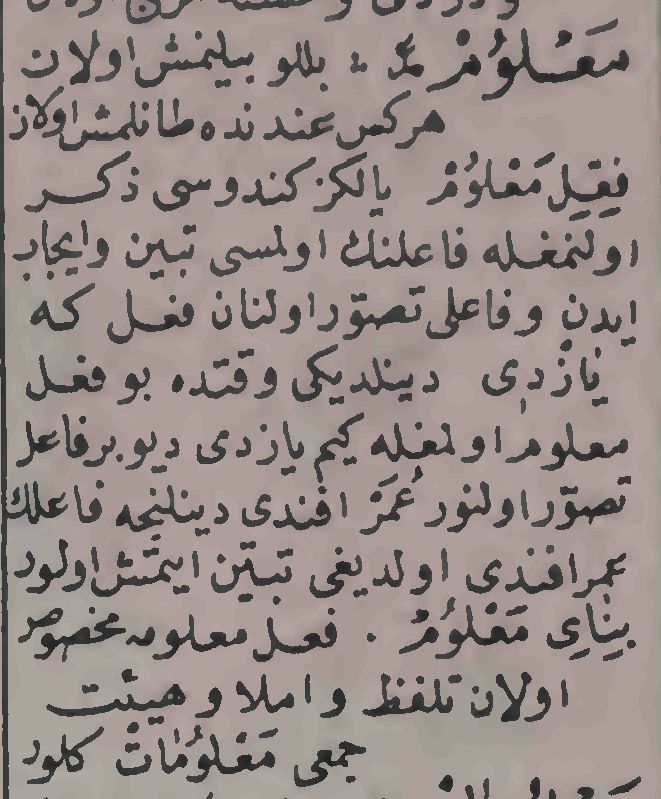 مَعْلُومْ عر : بللو بيلنمش اولان
هركس عندنده طانلمش اولان
فِعِلِ مَعْلُومْ يالكز كندوسى ذكر
اولنمغله فاعلنك اولمسى تبين وايجاب
ايدن وفاعلى تصوّر اولنان فعل كه
يَازْدِى دينلديكى وقتده بو فعل
معلوم اولمغله كيم يازدى ديو بر فاعل
تصوّر اولنور عُمَرْ افندى دينلنجه فاعلك
عمر افندى اولديغى تبيّن ايتمش اولور
بِنَاىِ مَعْلُومْ . فعل معلومه مخصوص
اولان تلفظ و املا و هيئت
جمعى مَعْلُومَاتْ كلور